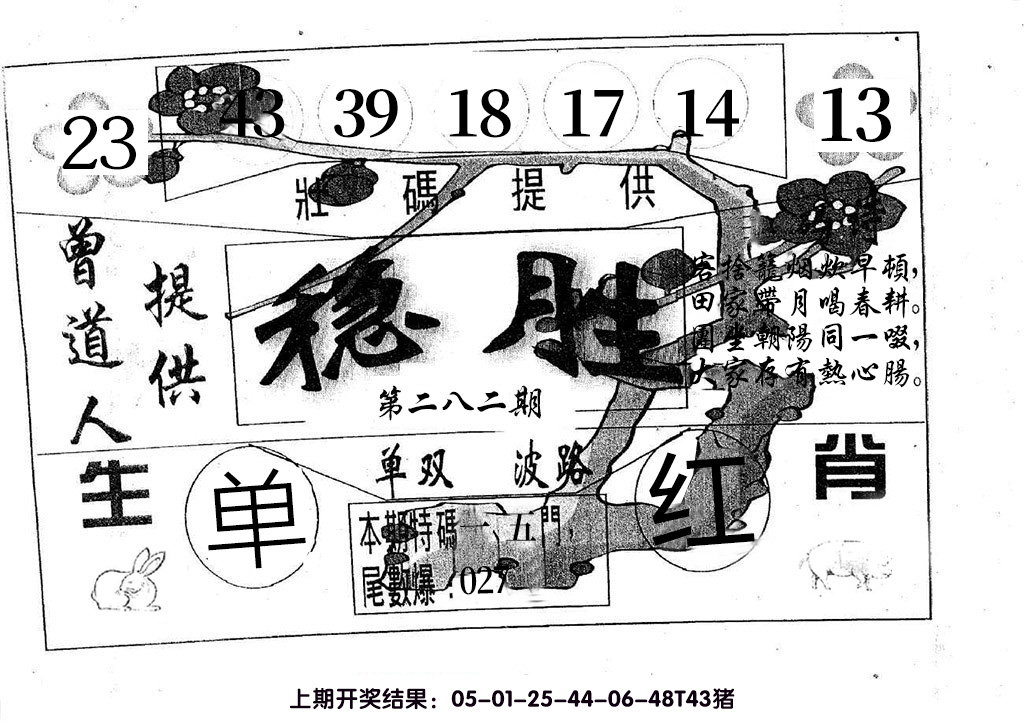 23 43 39 18 17 14 13
壯碼提供
曾道人
提供
穩胜
第二八二期
客捨籠烟炊早頓，
田家帶月喝春耕。
圍坐朝陽同一啜，
大家存有熱心腸。
单双 波路
生肖
单
红
本期特碼一、五門，
尾數爆：027
上期开奖结果：05-01-25-44-06-48T43猪